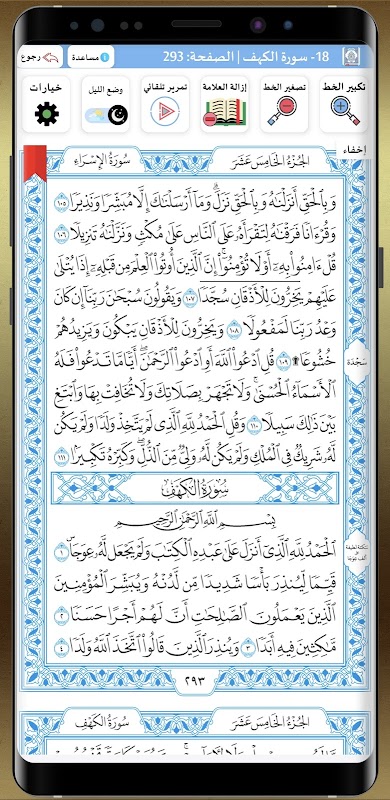 رجوع
مساعدة
18- سورة الكهف | الصفحة: 293
تكبير الخط
تصغير الخط
إزالة العلامة
تمرير تلقائي
وضع الليل
خيارات
إخفاء
الجُزْءُ الخَامِسَ عَشَرَ
سُورَةُ الإِسْرَاءِ
وَبِٱلْحَقِّ أَنزَلْنَٰهُ وَبِٱلْحَقِّ نَزَلَۗ وَمَآ أَرْسَلْنَٰكَ إِلَّا مُبَشِّرًا وَنَذِيرًا ١٠٥
وَقُرْءَانًا فَرَقْنَٰهُ لِتَقْرَأَهُۥ عَلَى ٱلنَّاسِ عَلَىٰ مُكْثٍ وَنَزَّلْنَٰهُ تَنزِيلًا ١٠٦
قُلْ ءَامِنُوا۟ بِهِۦٓ أَوْ لَا تُؤْمِنُوٓا۟ۚ إِنَّ ٱلَّذِينَ أُوتُوا۟ ٱلْعِلْمَ مِن قَبْلِهِۦٓ إِذَا يُتْلَىٰ
عَلَيْهِمْ يَخِرُّونَ لِلْأَذْقَانِ سُجَّدًا ١٠٧ وَيَقُولُونَ سُبْحَٰنَ رَبِّنَآ إِن كَانَ
وَعْدُ رَبِّنَا لَمَفْعُولًا ١٠٨ وَيَخِرُّونَ لِلْأَذْقَانِ يَبْكُونَ وَيَزِيدُهُمْ
خُشُوعًا ۩ ١٠٩ قُلِ ٱدْعُوا۟ ٱللَّهَ أَوِ ٱدْعُوا۟ ٱلرَّحْمَٰنَۖ أَيًّا مَّا تَدْعُوا۟ فَلَهُ
ٱلْأَسْمَآءُ ٱلْحُسْنَىٰۚ وَلَا تَجْهَرْ بِصَلَاتِكَ وَلَا تُخَافِتْ بِهَا وَٱبْتَغِ
بَيْنَ ذَٰلِكَ سَبِيلًا ١١٠ وَقُلِ ٱلْحَمْدُ لِلَّهِ ٱلَّذِى لَمْ يَتَّخِذْ وَلَدًا وَلَمْ يَكُن
لَّهُۥ شَرِيكٌ فِى ٱلْمُلْكِ وَلَمْ يَكُن لَّهُۥ وَلِىٌّ مِّنَ ٱلذُّلِّۖ وَكَبِّرْهُ تَكْبِيرًۢا ١١١
سَجْدَة
سُورَةُ الكَهْفِ
بِسْمِ ٱللَّهِ ٱلرَّحْمَٰنِ ٱلرَّحِيمِ
ٱلْحَمْدُ لِلَّهِ ٱلَّذِىٓ أَنزَلَ عَلَىٰ عَبْدِهِ ٱلْكِتَٰبَ وَلَمْ يَجْعَل لَّهُۥ عِوَجَاۜ ١
قَيِّمًا لِّيُنذِرَ بَأْسًا شَدِيدًا مِّن لَّدُنْهُ وَيُبَشِّرَ ٱلْمُؤْمِنِينَ
ٱلَّذِينَ يَعْمَلُونَ ٱلصَّٰلِحَٰتِ أَنَّ لَهُمْ أَجْرًا حَسَنًا ٢
مَّٰكِثِينَ فِيهِ أَبَدًا ٣ وَيُنذِرَ ٱلَّذِينَ قَالُوا۟ ٱتَّخَذَ ٱللَّهُ وَلَدًا ٤
٢٩٣
الجُزْءُ الخَامِسَ عَشَرَ
سُورَةُ الكَهْفِ